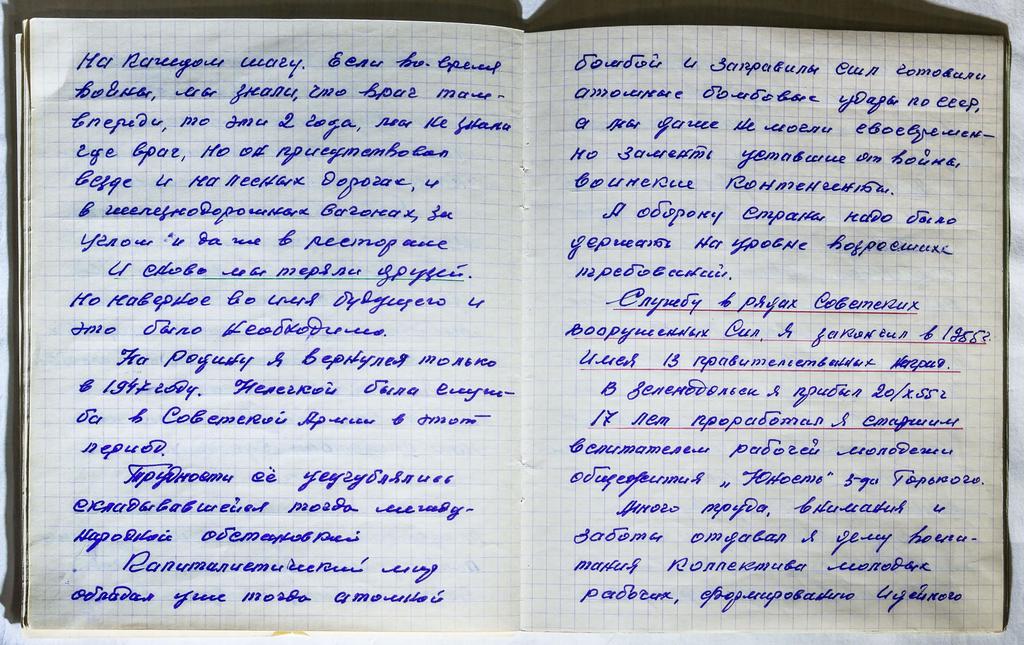 на каждом шагу. Если во-время
войны, мы знали, что враг там-
впереди, то эти 2 года, мы не знали
где враг, но он присутствовал
везде и на лесных дорогах, и
в железнодорожных вагонах, за
углом и даже в ресторане
И снова мы теряли друзей.
Но наверное во имя будущего и
это было необходимо.
На родину я вернулся только
в 1947 году. Нелегкой была служ-
ба в Советской Армии в этот
период.
Трудности её усугублялись
складывавшейся тогда между-
народной обстановкой
Капиталистический мир
обладал уже тогда атомной
бомбой и заправилы сша готовили
атомные бомбовые удары по ссср,
а мы даже не могли своевремен-
но заменть уставшие от войны
воинские контенгенты.
А оборону страны надо было
держать на уровне возросших
требований.
Службу в рядах Советских
Вооруженных Сил, я закончил в 1955г.
Имея 13 правительственных наград.
В Зеленодольск я прибыл 20/X 55 г
17 лет проработал я старшим
воспитателем рабочей молодежи
общежития „Юность" з-да Горького.
Много труда, внимания и
заботы отдавал я делу воспи-
тания коллектива молодых
рабочих, формированию идейного